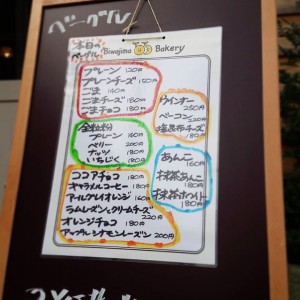 ベーグル
本日の
ベーグル
Biwajima Bakery
プレーン 120円
プレーンチーズ 150円
ごま 140円
ごまチーズ 180円
ごまチョコ 180円
全粒粉
プレーン 140円
ベリー 200円
ナッツ 180円
いちじく 180円
ココアチョコ 180円
キャラメルコーヒー 180円
アールグレイオレンジ 160円
ラムレーズンとクリームチーズ 220円
オレンジチョコ 180円
アップルシナモンレーズン 200円
ウインナー 250円
ベーコン 230円
塩昆布チーズ 180円
あんこ 160円
抹茶あんこ 180円
抹茶ホワイト 180円